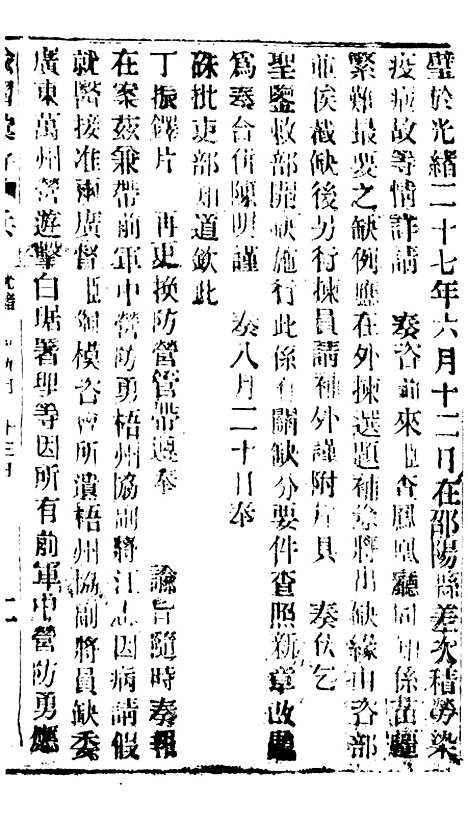 璧於光緒二十七年六月十二日在邵陽縣差次積勞染
疫病故等情詳請　奏咨前來臣查鳳凰廳同知係苗疆
緊難最要之缺例應在外揀選題補除將出缺緣由咨部
並俟截缺後另行揀員請補外謹附片具　奏伏乞
聖鑒敕部開缺施行此係有關缺分要件查照新章改題
為奏合併陳明謹　奏八月二十日奉
硃批吏部知道欽此
丁振鐸片　再更換防營管帶遵奉　諭旨隨時奏報
在案茲兼帶前軍中營防勇梧州協副將江志因病請假
就醫接准兩廣督臣陶模咨會所遺梧州協副將員缺委
廣東萬州營遊擊白琚署理等因所有前軍中營防勇應